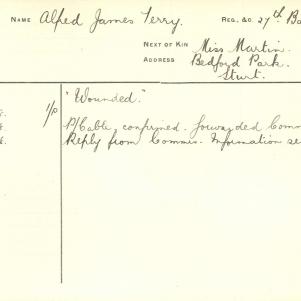 NAME Alfred James Terry. REG. &C. 27th Ba
NEXT OF KIN Miss Martin.
ADDRESS Bedford Park.
Sturt.
1/P "Wounded."
P/Cable confirmed. Forwarded Comm
Reply from Commis. Information se